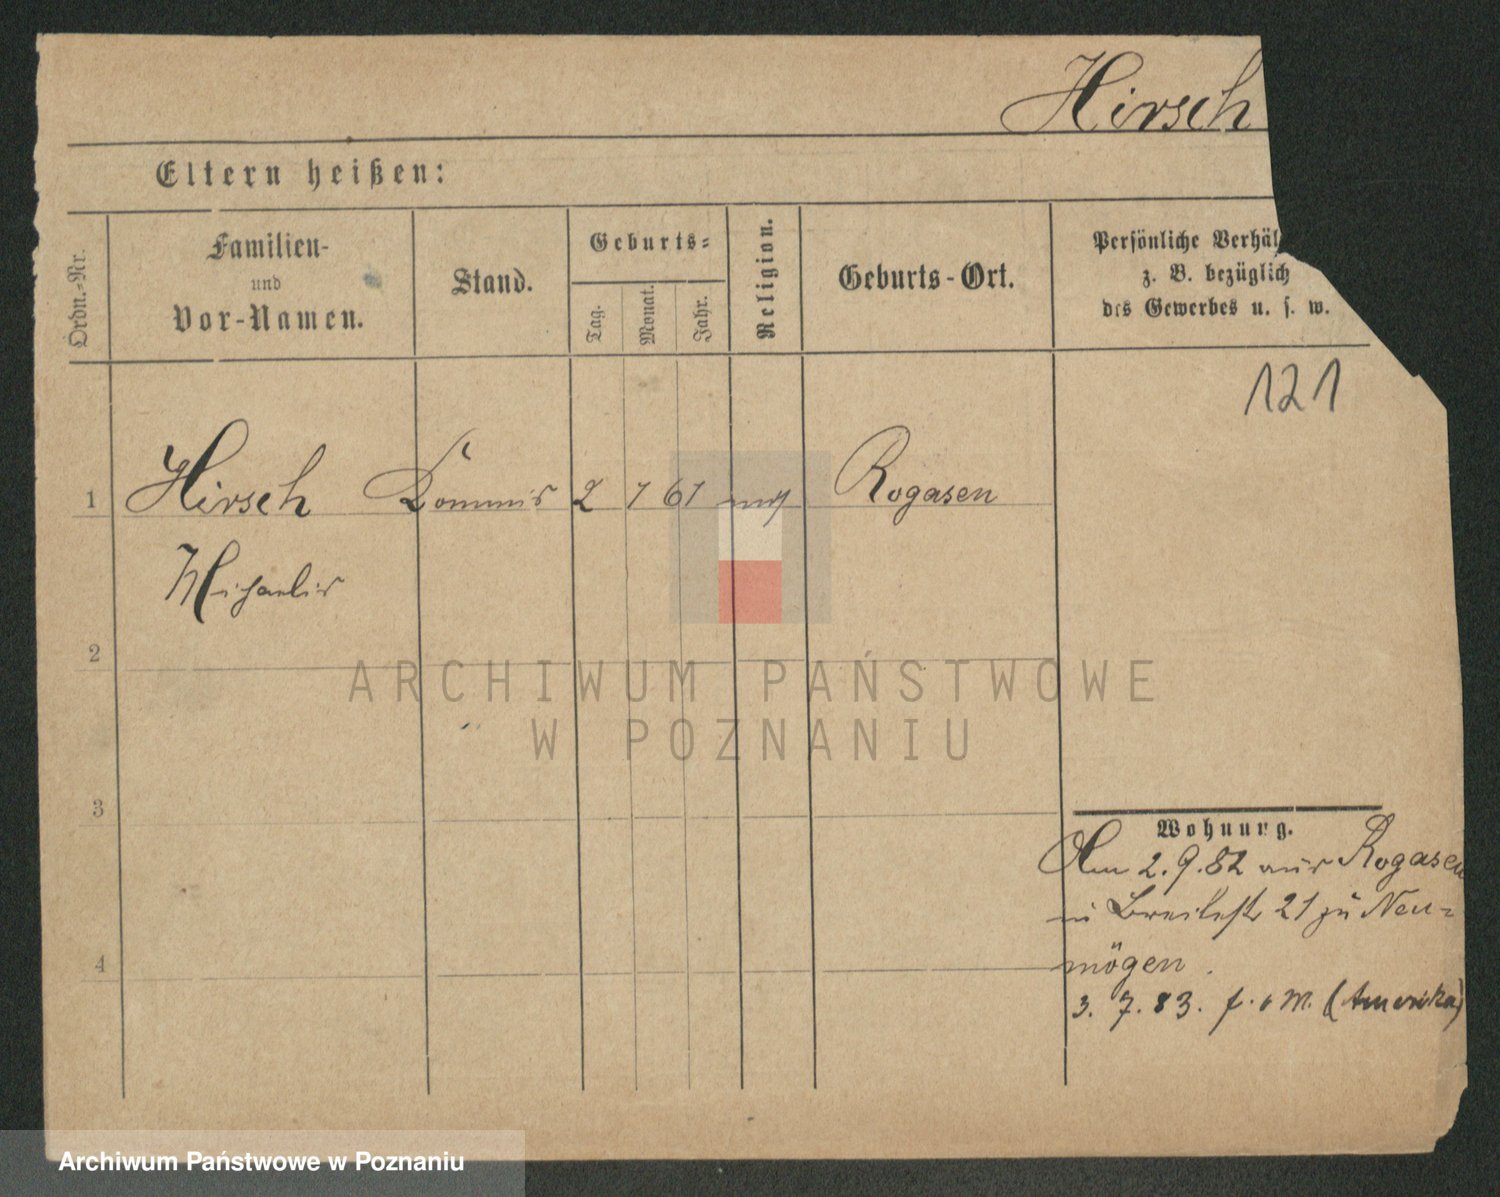 Hirsch
Eltern heißen:
Ordn.-Nr.
Familien-
und
Vor-Namen.
Stand.
Geburts-
Tag.
Monat.
Jahr.
Religion.
Geburts-Ort.
Persönliche Verhäl
z. B. bezüglich
des Gewerbes u. s. w.
121
1 Hirsch Kommis 2 7 61 mos Rogasen
Michaelis
2
3
4
ARCHIWUM PAŃSTWOWE
W POZNANIU
Wohnung.
Am 2.9.82 aus Rogasen
in Breitestr 21 zu Neu-
mögen.
3. 7. 83. f. v M. (Amerika)
Archiwum Państwowe w Poznaniu